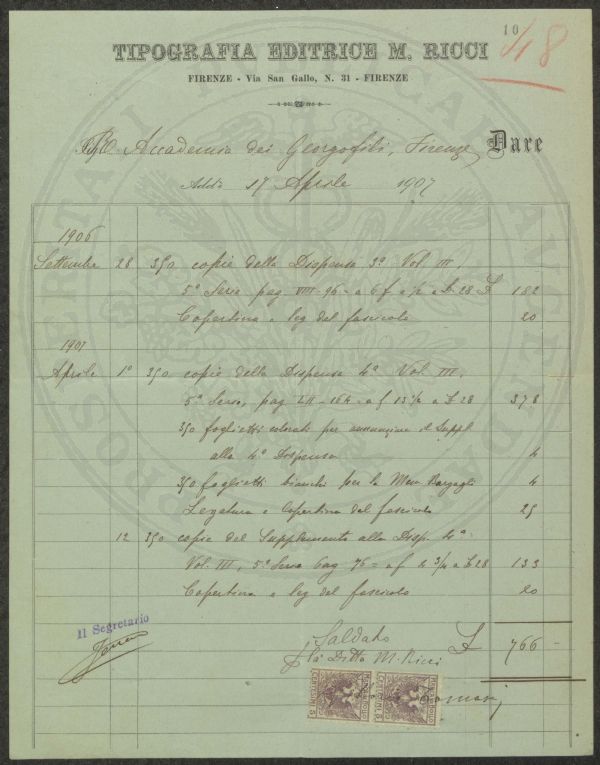 10
48
TIPOGRAFIA EDITRICE M. RICCI
FIRENZE - Via San Gallo, N. 31 - FIRENZE
Accademia dei Georgofili, Firenze Dare
Addì 17 Aprile 1907
1906
Settembre 28 350 copie della Dispensa 3ª Vol. III
5ª Serie pag VIII-96 = a £ 28 £ 182
Copertina e leg del fascicolo 20
1907
Aprile 1º 350 copie della Dispensa 4ª Vol. III,
5ª Serie, pag LII-164 = f 13½ a £ 28 378
350 foglietti colorati per annunzio il Suppl
alla 4ª Dispensa 4
350 foglietti bianchi per la Mem Bargagli 4
Legatura e Copertina del fascicolo 25
12 350 copie del Supplemento alla Disp. 4ª
Vol. III, 5ª Serie pag 76 = f 4 3/4 a £ 28 133
Copertina e leg del fascicolo 20
Il Segretario
Saldato £ 766
p la Ditta M. Ricci